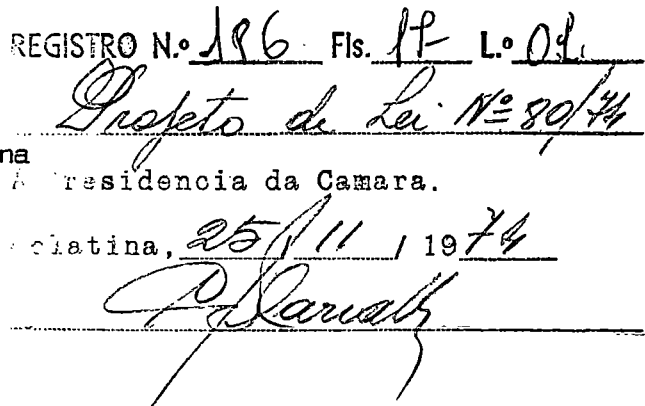 REGISTRO N.º 196 Fls. L.º 01.
Projeto de Lei Nº 80/74
na
residencia da Camara.
olatina, 25 / 11 / 1974